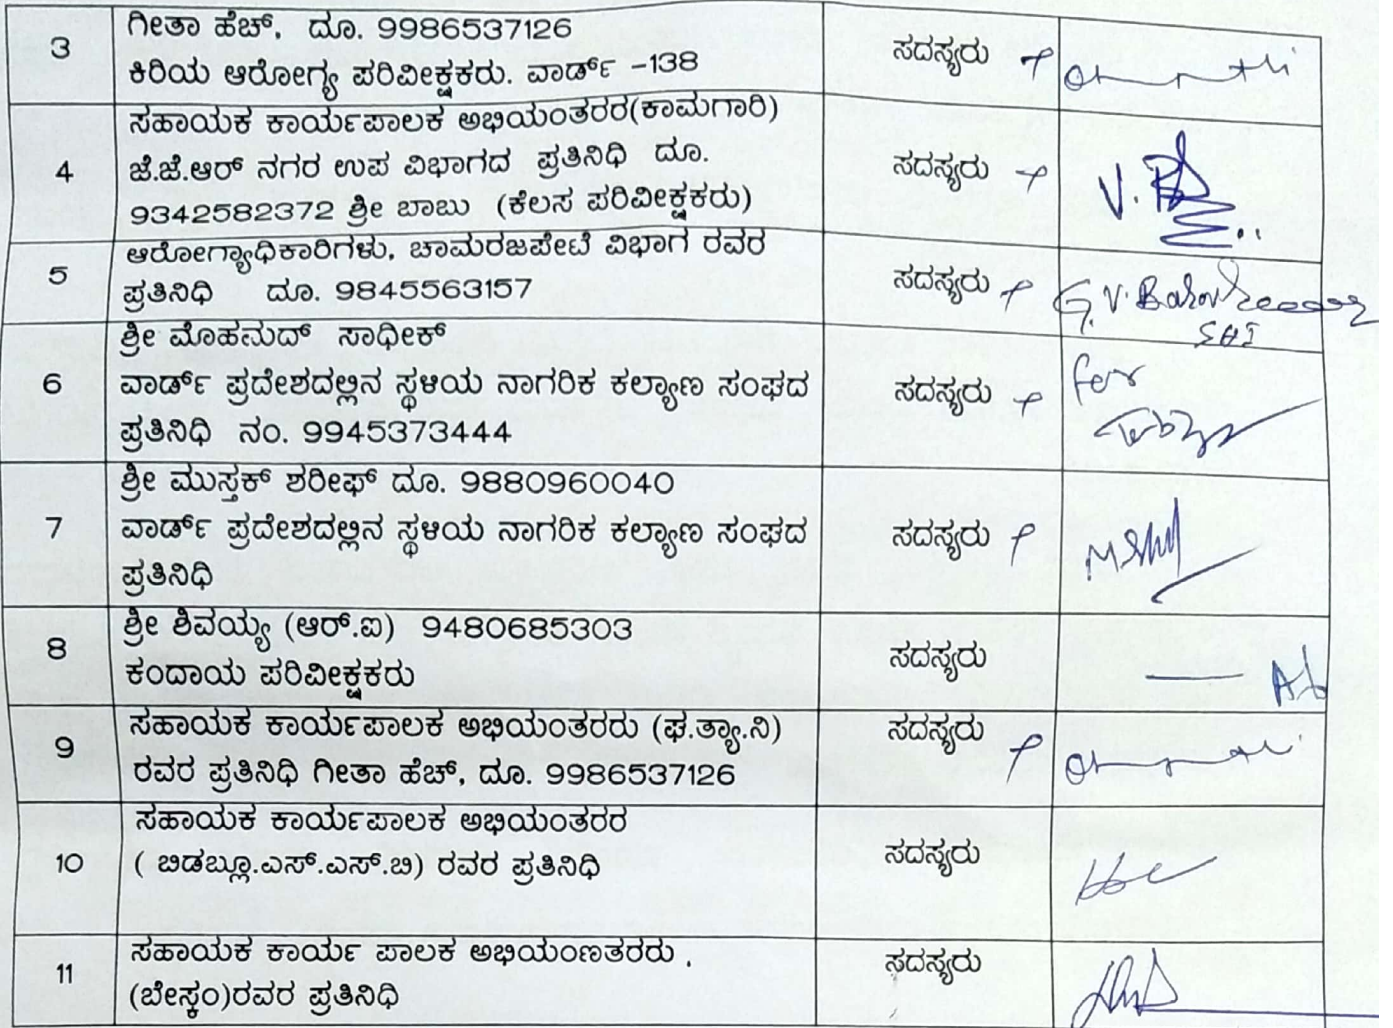 3
ಗೀತಾ ಹೆಚ್. ದೂ. 9986537126
ಕಿರಿಯ ಆರೋಗ್ಯ ಪರಿವೀಕ್ಷಕರು. ವಾರ್ಡ್ -138
ಸದಸ್ಯರು
4
ಸಹಾಯಕ ಕಾರ್ಯಪಾಲಕ ಅಭಿಯಂತರರ(ಕಾಮಗಾರಿ)
ಜೆ.ಜೆ.ಆರ್ ನಗರ ಉಪ ವಿಭಾಗದ ಪ್ರತಿನಿಧಿ ದೂ.
9342582372 ಶ್ರೀ ಬಾಬು (ಕೆಲಸ ಪರಿವೀಕ್ಷಕರು)
ಸದಸ್ಯರು
5
ಆರೋಗ್ಯಾಧಿಕಾರಿಗಳು, ಚಾಮರಜಪೇಟೆ ವಿಭಾಗ ರವರ
ಪ್ರತಿನಿಧಿ ದೂ. 9845563157
ಸದಸ್ಯರು
G.V.
SHI
6
ಶ್ರೀ ಮೊಹಮದ್ ಸಾಧೀಕ್
ವಾರ್ಡ್ ಪ್ರದೇಶದಲ್ಲಿನ ಸ್ಥಳಿಯ ನಾಗರಿಕ ಕಲ್ಯಾಣ ಸಂಘದ
ಪ್ರತಿನಿಧಿ ನಂ. 9945373444
ಸದಸ್ಯರು
for
7
ಶ್ರೀ ಮುಸ್ತಕ್ ಶರೀಫ್ ದೂ. 9880960040
ವಾರ್ಡ್ ಪ್ರದೇಶದಲ್ಲಿನ ಸ್ಥಳಿಯ ನಾಗರಿಕ ಕಲ್ಯಾಣ ಸಂಘದ
ಪ್ರತಿನಿಧಿ
ಸದಸ್ಯರು
8
ಶ್ರೀ ಶಿವಯ್ಯ (ಆರ್.ಐ) 9480685303
ಕಂದಾಯ ಪರಿವೀಕ್ಷಕರು
ಸದಸ್ಯರು
Ab
9
ಸಹಾಯಕ ಕಾರ್ಯಪಾಲಕ ಅಭಿಯಂತರರು (ಘ.ತ್ಯಾ.ನಿ)
ರವರ ಪ್ರತಿನಿಧಿ ಗೀತಾ ಹೆಚ್. ದೂ. 9986537126
ಸದಸ್ಯರು
10
ಸಹಾಯಕ ಕಾರ್ಯಪಾಲಕ ಅಭಿಯಂತರರ
( ಬಿಡಬ್ಲೂ.ಎಸ್.ಎಸ್.ಬಿ) ರವರ ಪ್ರತಿನಿಧಿ
ಸದಸ್ಯರು
11
ಸಹಾಯಕ ಕಾರ್ಯ ಪಾಲಕ ಅಭಿಯಂಣತರರು .
(ಬೇಸ್ಕಂ)ರವರ ಪ್ರತಿನಿಧಿ
ಸದಸ್ಯರು